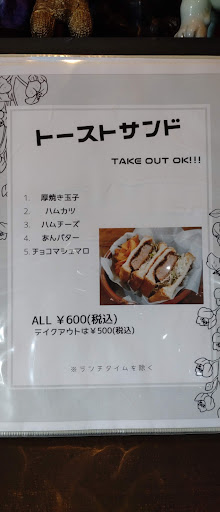 トーストサンド
TAKE OUT OK!!!
1. 厚焼き玉子
2. ハムカツ
3. ハムチーズ
4. あんバター
5. チョコマシュマロ
ALL ￥600(税込)
テイクアウトは￥500(税込)
※ランチタイムを除く